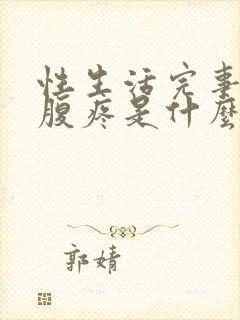 性生活完事
腹疼是什麼
郭婧